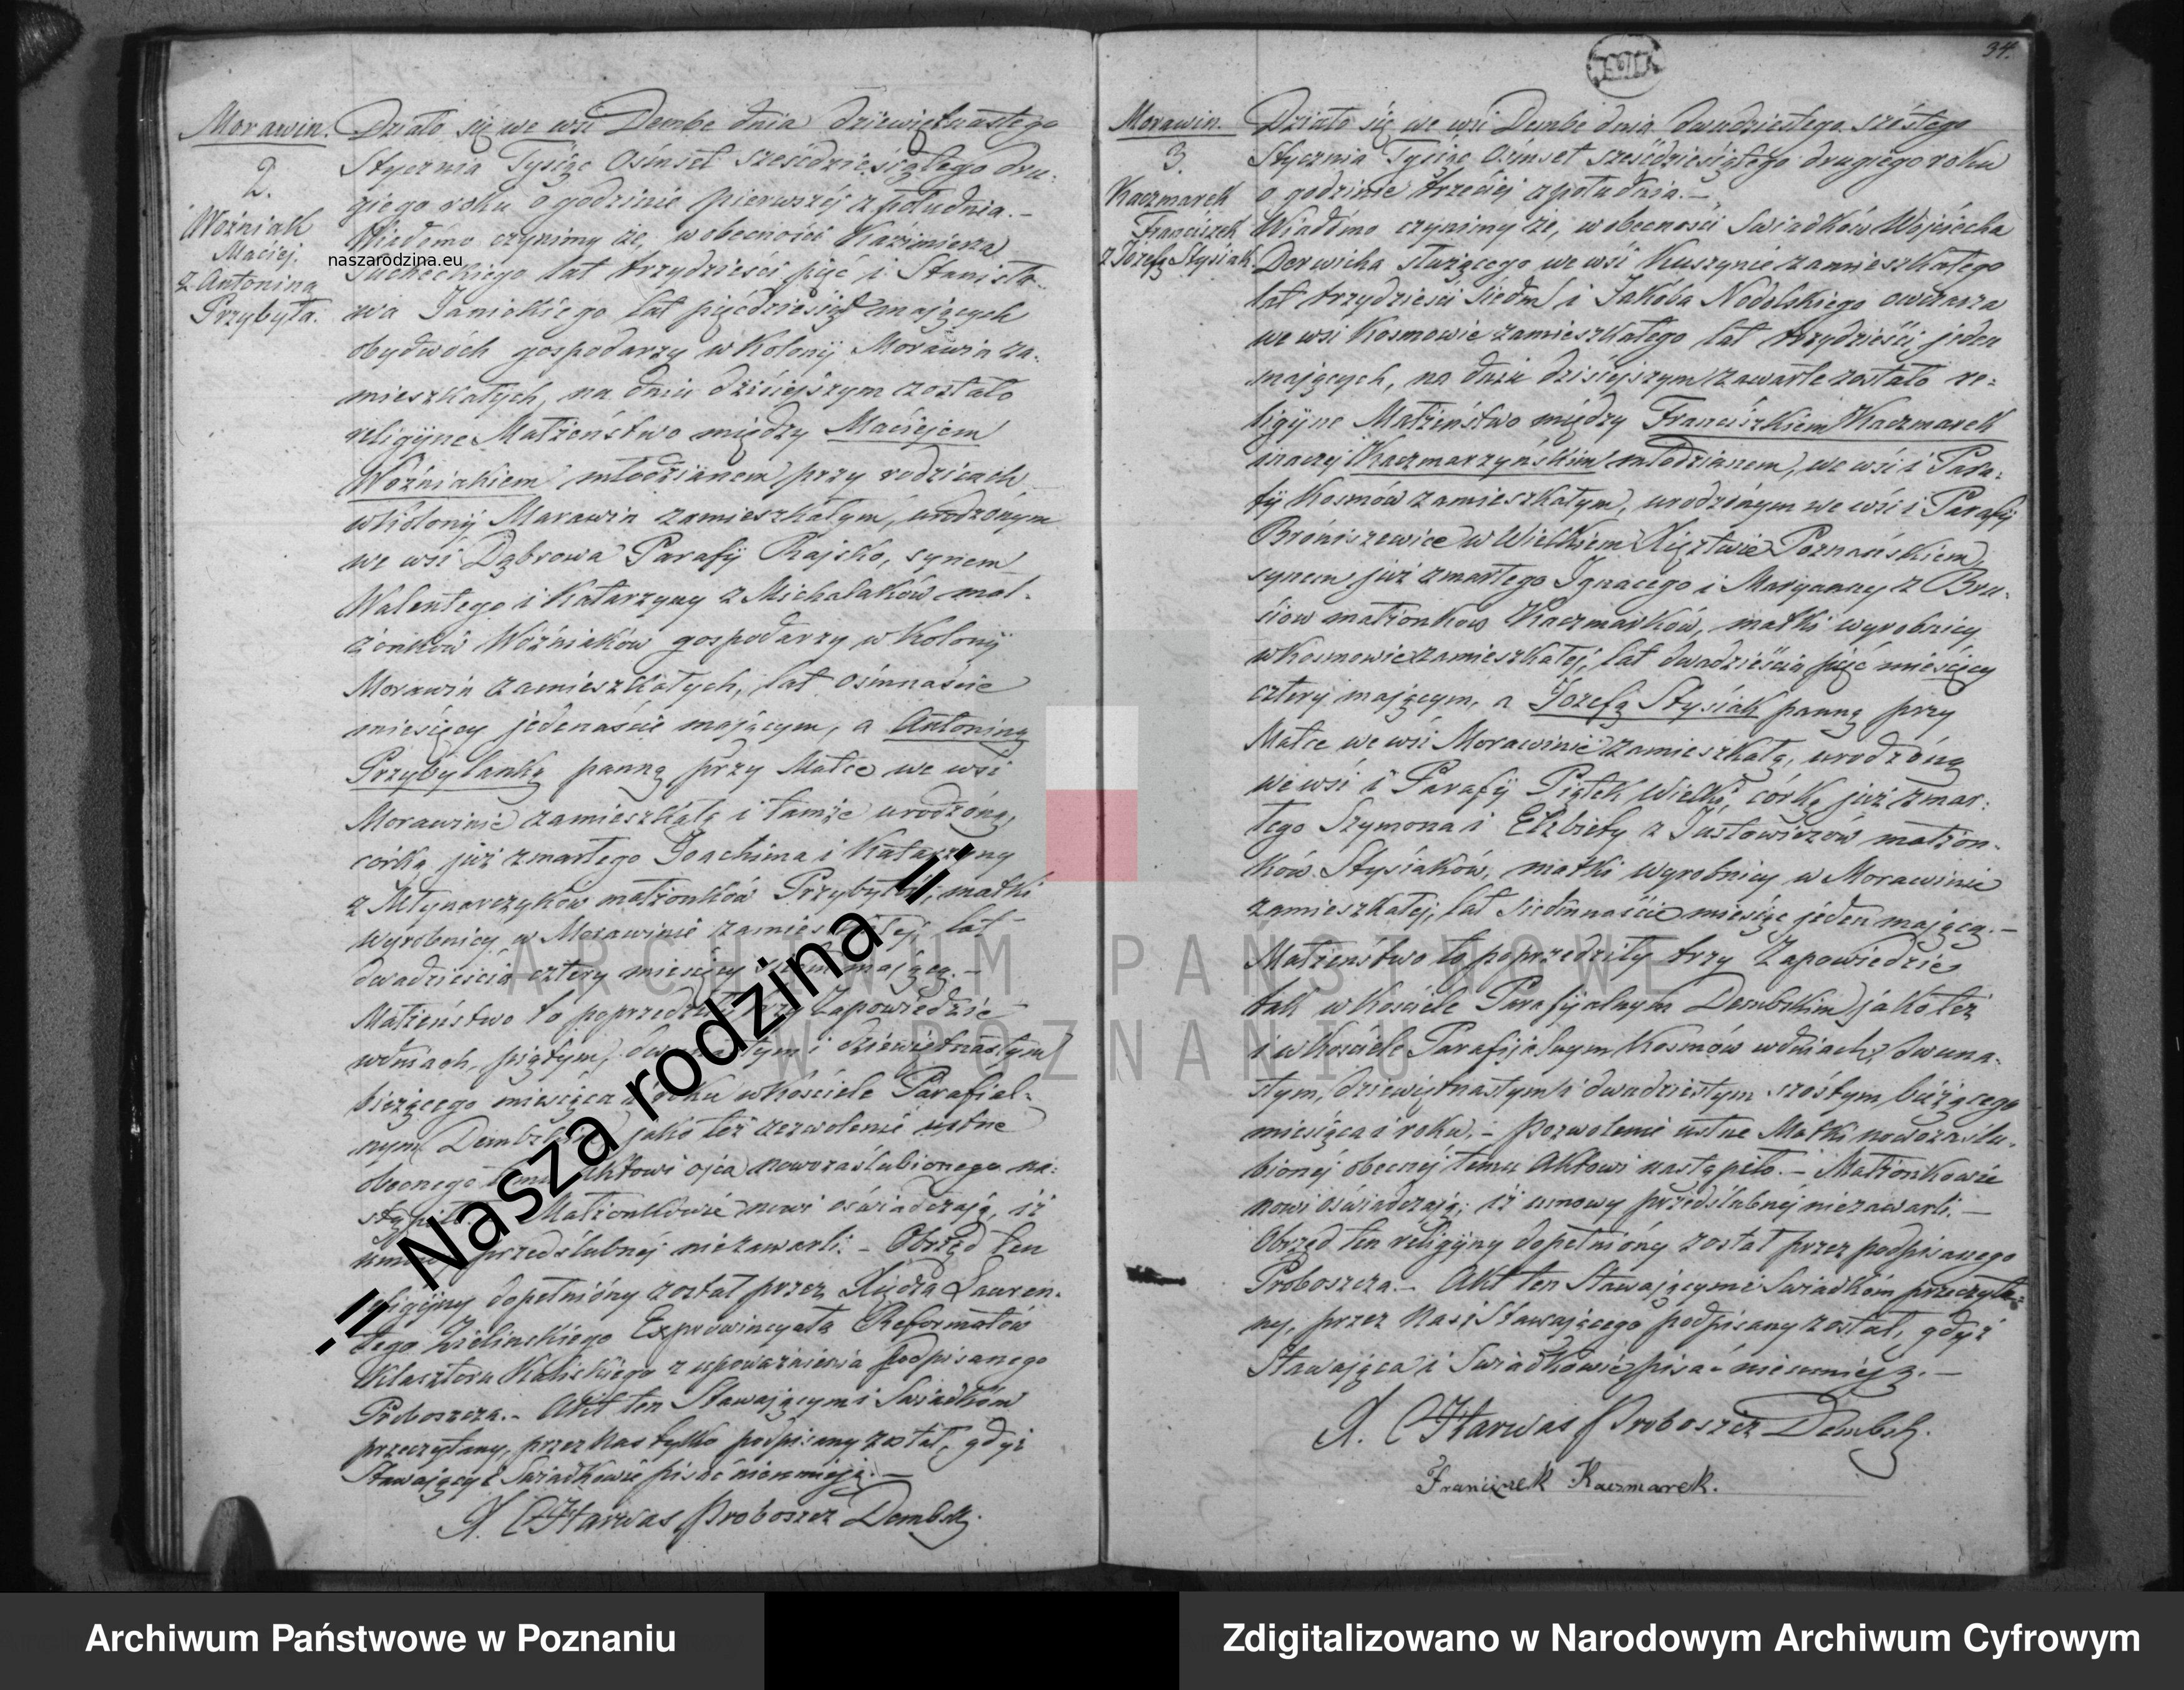 Morawin.
2.
Woźniak
Maciej.
z Antoniną
Przybyła.
Działo się we wsi Dembe dnia dziewiętnastego
Stycznia Tysiąc Ośmset sześćdziesiątego dru-
giego roku o godzinie pierwszéj z południa.-
Wiadomo czynimy że, w obecności Kazimierza
naszarodzina.eu
Sucheckiego lat trzydzieści pięć i Stanisła-
wa Janickiego lat pięćdziesiąt mających
obydwóch gospodarzy w Kolonij Morawin za-
mieszkałych, na dniu dzisiejszym zostało
religijne Małżeństwo między Maciejem
Woźniakiem młodzianem przy rodzicach
w Kolonij Morawin zamieszkałym, urodzonym
we wsi Dąbrowa Parafij Rajsko, synem
Walentego i Katarzyny z Michalaków mał-
żonków Woźniaków gospodarzy w Kolonij
Morawin zamieszkałych, lat ośmnaście
miesięcy jedenaście mającym, a Antoniną
Przybylanką panną przy Matce we wsi
Morawinie zamieszkałą i tamże urodzoną,
córką już zmarłego Joachima i Katarzyny
z Młynarczyków małżonków Przybyłów, matki
wyrobnicy w Morawinie zamieszkałej, lat
dwadzieścia cztery miesięcy mającą.-
Małżeństwo to poprzedziły trzy Zapowiedzie
w dniach, piątym, dwunastym i dziewiętnastym
bieżącego miesiąca i roku w kościele Parafial-
nym Dembskim jako też zezwolenie ustne
obecnego temu Aktowi ojca nowozaślubionego na-
stąpiło. Małżonkowie nowi oświadczają, iż
umowy przedślubnéj niezawarli.- Obrzęd ten
religijny dopełniony został przez Xiędza Lauren-
tego Zielinskiego Exprowincyała Reformatów
Klasztoru Kaliskiego z upoważnienia podpisanego
Proboszcza.- Akt ten Stawającym i Świadkom
przeczytany, przez Nas tylko podpisany został, gdyż
Stawający i Świadkowie pisać nieumieją.-
X. Harwas Proboszcz Dembsk.
-= Nasza rodzina =-
34.
Morawin.
3.
Kaczmarek
Franciszek
z Józefą Stysiak
Działo się we wsi Dembe dnia dwudziestego szóstego
Stycznia Tysiąc Ośmset sześćdziesiątego drugiego roku
o godzinie trzeciej z południa.-
Wiadomo czynimy że, w obecności Swiadków Wojciecha
Derwicha służącego we wsi Kuszynie zamieszkałego
lat trzydzieści siedm i Jakóba Nodolskiego owczarza
we wsi Kosmowie zamieszkałego lat trzydzieści jeden
mających, na dniu dzisiejszym zawarte zostało re-
ligijne Małżeństwo między Franciszkiem Kaczmarek
inaczej Kaczmarzyńskim młodzianem, we wsi i Para-
fij Kosmów zamieszkałym, urodzonym we wsi i Parafij
Broniszewice w Wielkiem Xięztwie Poznańskiem,
synem już zmarłego Ignacego i Maryanny z Bru-
siow małżonkow Kaczmarków, matki wyrobnicy
w Kosmowie zamieszkałej, lat dwadzieścia pięć miesięcy
cztery mającym, a Józefą Stysiak panną przy
Matce we wsi Morawinie zamieszkałą, urodzoną
we wsi i Parafij Piątek Wielki, córką już zmar-
łego Szymona i Elżbiety z Justowiczów małżon-
ków Stysiaków, matki wyrobnicy w Morawinie
zamieszkałej, lat siedmnaście miesiąc jeden mającą.-
Małżeństwo to poprzedziły trzy Zapowiedzie
tak w kościele Parafijalnym Dembskim jako też
i w kościele Parafijalnym Kosmów w dniach, dwuna-
stym, dziewiętnastym i dwudziestym szóstym bieżącego
miesiąca i roku.- Pozwolenie ustne Matki nowozaślu-
bionéj obecnéj temu Aktowi nastąpiło.- Małżonkowie
nowi oświadczają, iż umowy przedślubnéj niezawarli.-
Obrzęd ten religijny dopełniony został przez podpisanego
Proboszcza.- Akt ten Stawającym i Swiadkom przeczyta-
ny, przez Nas i Stawającego podpisany został, gdyż
Stawająca i Swiadkowie pisać nieumieją.-
X. Harwas Proboszcz Dembsk.
Franciszek Kaczmarek.
ARCHIWUM PAŃSTWOWE
W POZNANIU
Archiwum Państwowe w Poznaniu
Zdigitalizowano w Narodowym Archiwum Cyfrowym